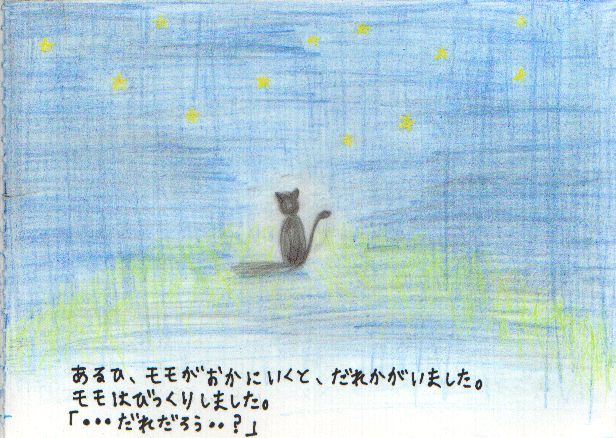 あるひ、モモがおかにいくと、だれかがいました。
モモはびっくりしました。
「・・・だれだろう・・?」